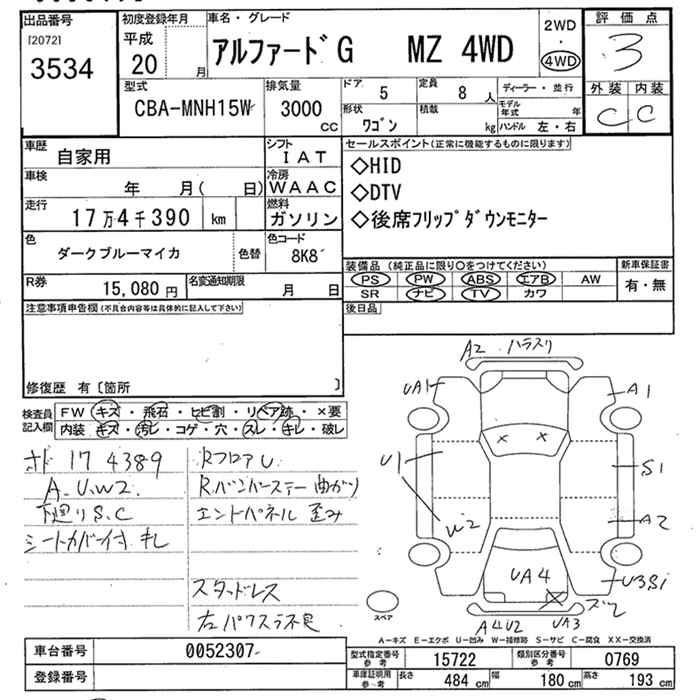 出品番号
[2072]
3534
初度登録年月
平成
20
月
車名・グレード
アルファードG MZ 4WD
2WD
・
4WD
評価点
3
外装 内装
C C
型式
CBA-MNH15W
排気量
3000
cc
ドア
5
定員
8
人
ディーラー・並行
形状
ワゴン
積載
kg
モデル年式
年
ハンドル 左・右
車歴
自家用
シフト
IAT
車検
年 月( 日)
冷房
WAAC
走行
17万4千390 km
燃料
ガソリン
色
ダークブルーマイカ
色替
色コード
8K8
R券
15,080 円
名変通知期限
月 日
セールスポイント(正常に機能するものに限ります)
◇HID
◇DTV
◇後席フリップダウンモニター
装備品(純正品に限り○をつけてください)
PS PW ABS エアB AW
SR ナビ TV カワ
新車保証書
有・無
注意事項申告欄(不具合内容等は具体的に記入して下さい)
後日品
修復歴 有〔箇所 〕
検査員
記入欄
FW キズ・飛石・ヒビ割・リペア跡・×要
内装 キズ・汚レ・コゲ・穴・スレ・キレ・破レ
17 4389
A.U.W2.
下廻りS.C
シートカバー付 キレ
RフロアU
Rバンパーステー曲がり
エンドパネル 歪み
スタッドレス
左パワスラ不良
A2 ハラスリ
UA1
A1
U1
S1
W2
A2
UA4
U3S1
A4U2
UA3
スペア
A-キズ E-エクボ U-凹み W-補修跡 S-サビ C-腐食 XX-交換済
車台番号
0052307
登録番号
型式指定番号
参考
15722
類別区分番号
参考
0769
車庫証明用
参考
長さ
484 cm
幅
180 cm
高さ
193 cm